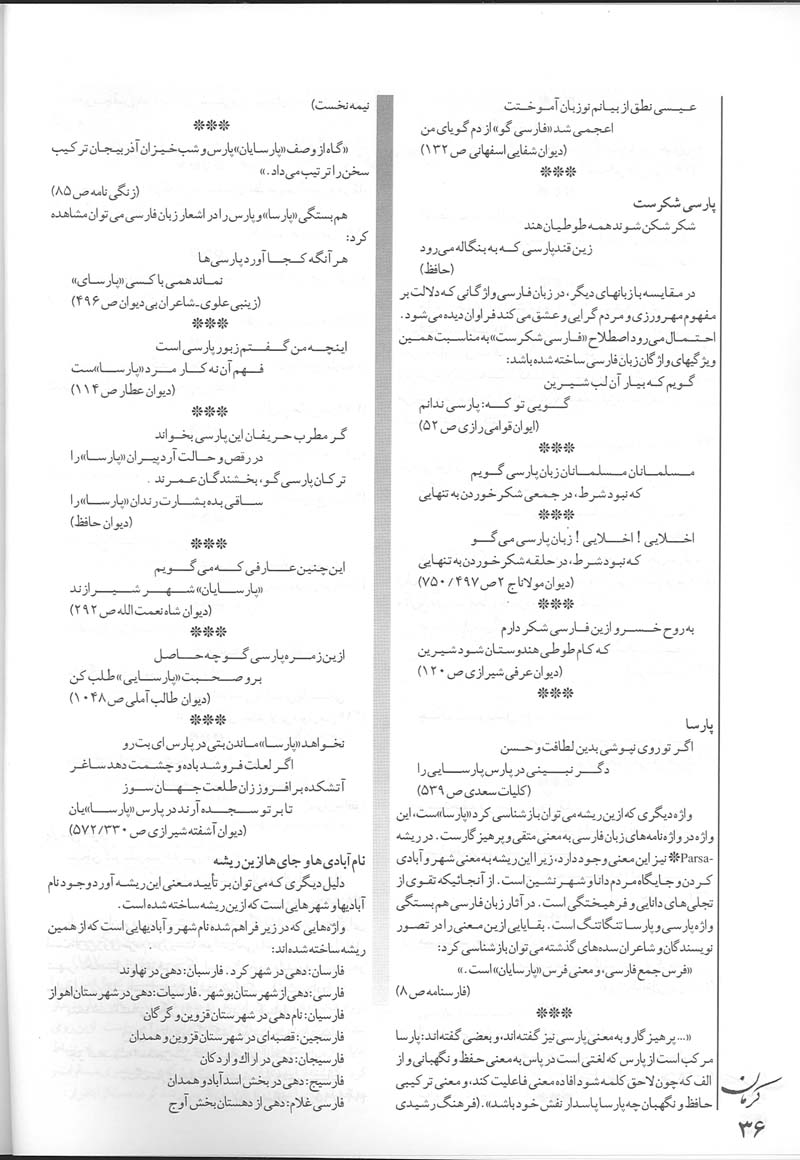 عیسی نطق از بیانم نوزبان آموختت
اعجمی شد «فارسی گو» از دم گویای من
(دیوان شفایی اصفهانی ص ۱۳۲)
***
پارسی شکرست
شکر شکن شوند همه طوطیان هند
زین قند پارسی که به بنگاله می‌رود
(حافظ)
در مقایسه با زبانهای دیگر، در زبان فارسی واژگانی که دلالت بر
مفهوم مهرورزی و مردم گرایی و عشق می‌کند فراوان دیده می‌شود.
احتمال می‌رود اصطلاح «فارسی شکرست» به مناسبت همین
ویژگیهای واژگان زبان فارسی ساخته شده باشد:
گویم که بیار آن لب شیرین
گویی تو که: پارسی ندانم
(ایوان قوامی رازی ص ۵۲)
***
مسلمانان مسلمانان زبان پارسی گویم
که نبود شرط، در جمعی شکر خوردن به تنهایی
***
اخلایی! اخلایی! زبان پارسی می‌گو
که نبود شرط، در حلقه شکر خوردن به تنهایی
(دیوان مولانا ج ۲ ص ۷۵۰/۴۹۷)
***
به روح خسرو ازین فارسی شکر دارم
که کام طوطی هندوستان شود شیرین
(دیوان عرفی شیرازی ص ۱۲۰)
***
پارسا
اگر تو روی نپوشی بدین لطافت و حسن
دگر نبینی در پارس پارسایی را
(کلیات سعدی ص ۵۳۹)
واژه دیگری که ازین ریشه می‌توان بازشناسی کرد «پارسا»ست، این
واژه در واژه‌نامه‌های زبان فارسی به معنی متقی و پرهیزگارست. در ریشه
-Parsa* نیز این معنی وجود دارد، زیرا این ریشه به معنی شهر و آبادی
کردن و جایگاه مردم دانا و شهرنشین است. از آنجائیکه تقوی از
تجلی‌های دانایی و فرهیختگی است. در آثار زبان فارسی هم بستگی
واژه پارسی و پارسا تنگاتنگ است. بقایایی ازین معنی را در تصور
نویسندگان و شاعران سده‌های گذشته می‌توان بازشناسی کرد:
«فرس جمع فارسی، و معنی فرس «پارسایان» است.»
(فارسنامه ص ۸)
***
«... پرهیزگار و به معنی پارسی نیز گفته‌اند، و بعضی گفته‌اند: پارسا
مرکب است از پارس که لغتی است در پاس به معنی حفظ و نگهبانی و از
الف که چون لاحق کلمه شود افاده معنی فاعلیت کند، و معنی ترکیبی
حافظ و نگهبان چه پارسا پاسدار نفش خود باشد». (فرهنگ رشیدی
نیمه نخست)
***
«گاه از وصف «پارسایان» پارس و شب خیزان آذربیجان ترکیب
سخن را ترتیب می‌داد.»
(زنگی نامه ص ۸۵)
هم بستگی «پارسا» و پارس را در اشعار زبان فارسی می‌توان مشاهده
کرد:
هر آنگه کجا آورد پارسی‌ها
نماند همی با کسی «پارسای»
(زینبی علوی-شاعران بی دیوان ص ۴۹۶)
***
اینچه من گفتم زبور پارسی است
فهم آن نه کار مرد «پارسا»ست
(دیوان عطار ص ۱۱۴)
***
گر مطرب حریفان این پارسی بخواند
در رقص و حالت آرد پیران «پارسا» را
ترکان پارسی گو، بخشندگان عمرند.
ساقی بده بشارت رندان «پارسا» را
(دیوان حافظ)
***
این چنین عارفی که می‌گویم
«پارسایان» شهر شیرازند
(دیوان شاه نعمت الله ص ۲۹۲)
***
ازین زمره پارسی گو چه حاصل
برو صحبت «پارسایی» طلب کن
(دیوان طالب آملی ص ۱۰۴۸)
***
نخواهد «پارسا» ماندن بتی در پارس ای بت رو
اگر لعلت فروشد باده و چشمت دهد ساغر
آتشکده برافروز زان طلعت جهان سوز
تا بر تو سجده آرند در پارس «پارسا»یان
(دیوان آشفته شیرازی ص ۵۷۲/۳۳۰)
نام آبادی‌ها و جای‌ها ازین ریشه
دلیل دیگری که می‌توان بر تأیید معنی این ریشه آورد وجود نام
آبادیها و شهرهایی است که ازین ریشه ساخته شده است.
واژه‌هایی که در زیر فراهم شده نام شهر و آبادیهایی است که از همین
ریشه ساخته شده‌اند:
فارسان: دهی در شهر کرد. فارسبان: دهی در نهاوند
فارسی: دهی از شهرستان بوشهر. فارسیات: دهی در شهرستان اهواز
فارسیان: نام دهی در شهرستان قزوین و گرگان
فارسجین: قصبه‌ای در شهرستان قزوین و همدان
فارسیجان: دهی در اراك و اردکان
فارسیج: دهی در بخش اسدآباد و همدان
فارسی غلام: دهی از دهستان بخش آوج
کرمان
۳۶